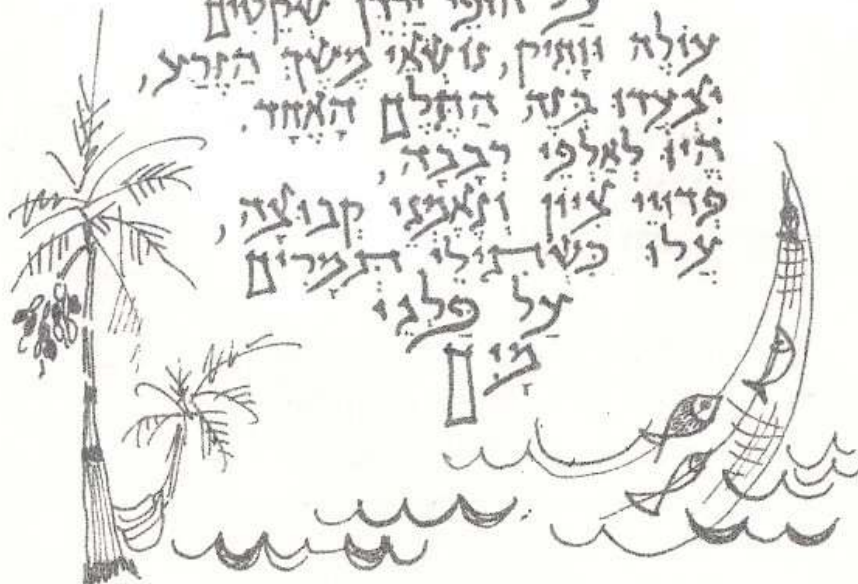 על חופי ירדן שקטים
עוֹלֶה וְוָתִיק, נוֹשְׂאֵי מֶשֶׁךְ הַזֶּרַע,
יִצְעֲדוּ בְּזֶה הַתֶּלֶם הָאֶחָד.
הֱיוּ לְאַלְפֵי רְבָבָה,
פְּדוּיֵי צִיּוֹן וְנֶאֱמְנֵי קְבוּצָה,
עֲלוּ כִּשְׁתִילֵי תְּמָרִים
עַל פַּלְגֵי
מַיִם